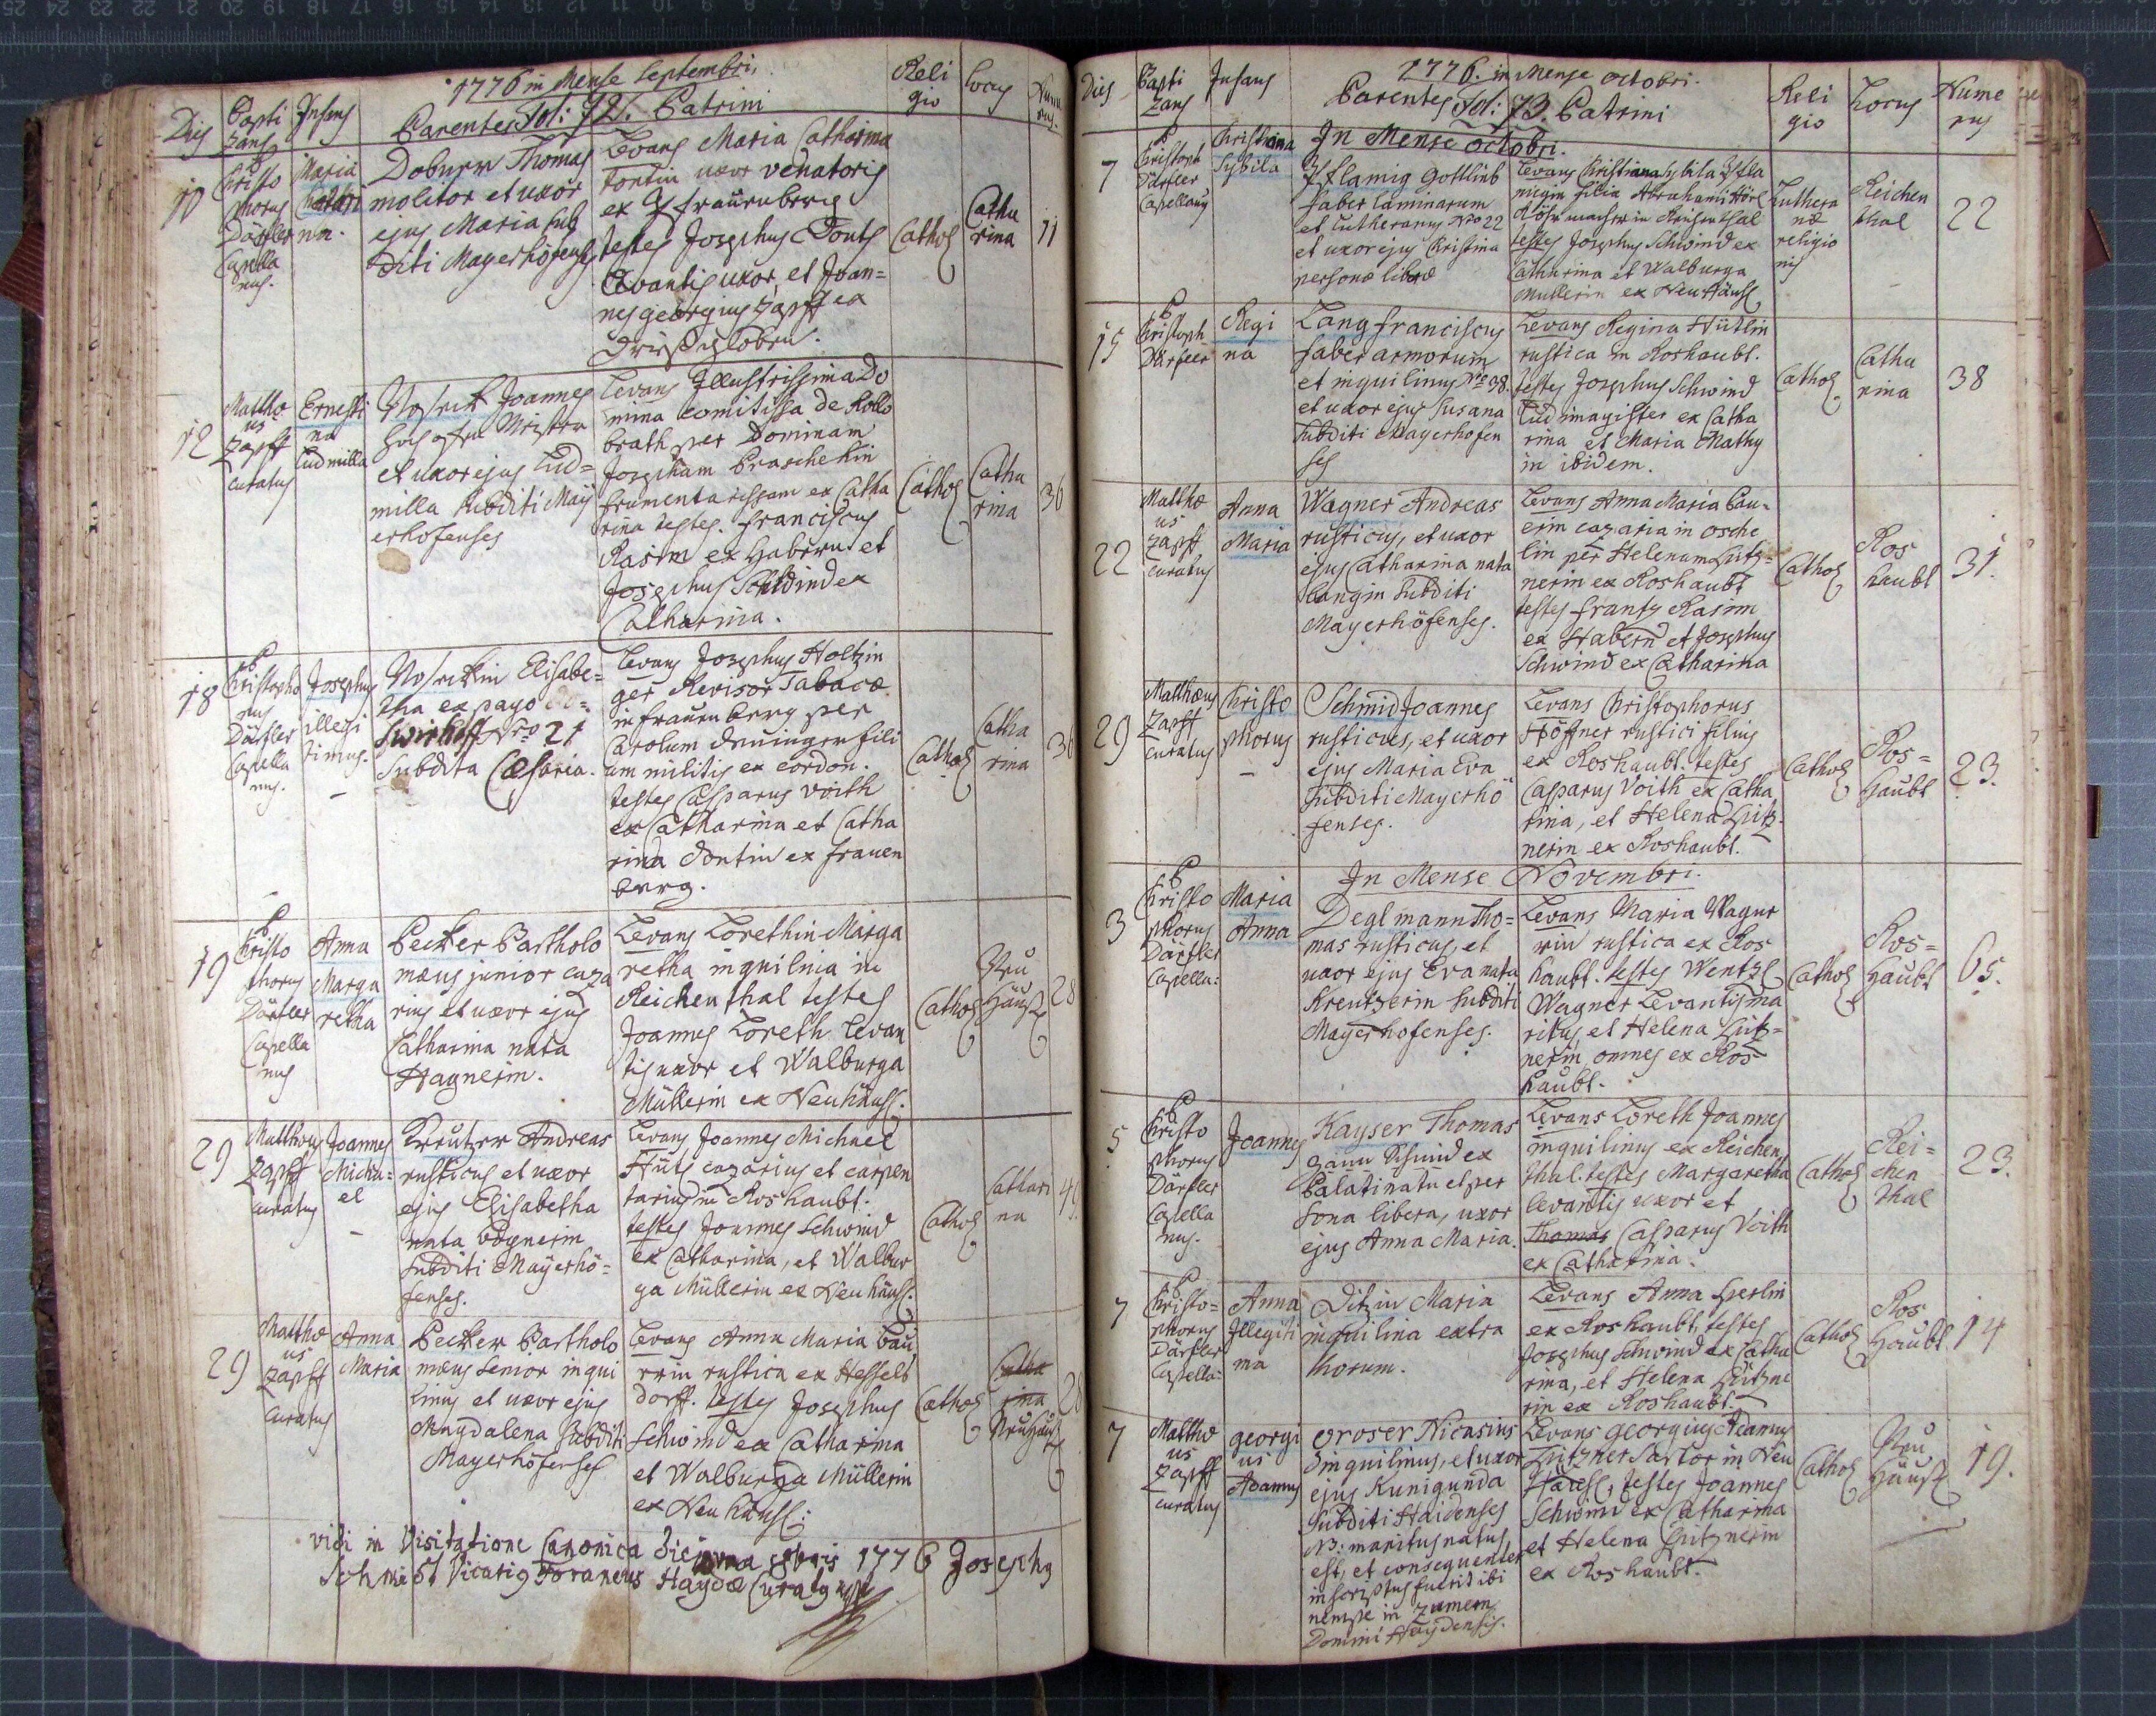 1776 in Mense Septembri,
Dies Bapti zans Infans Parentes Fol: 72. Patrini Reli gio Locus Nume rus.
10
P Christo
phorus
Därfler
Capella
nus.
Maria
Cathari
na.
Thomas
molitor et uxor
ejus Maria sub
diti Mayerhöfenses
Levans Maria Catharina
uxor venatoris
ex
testes Josephus
Levantis uxor, et Joan=
nes georgius Zapff ex
Cathol
Catha
rina
11
12
Matthæ
us
Zapff
curatus
Ernesti
na
Ludmilla
Joannes
et uxor ejus Lud=
milla subditi Maÿ
erhofenses
Levans Illustrissima Do
mina Comitissa de
per Dominam
Josepham
ex Catha
rina testes. Franciscus
Rasim ex Habern et
Josephus Schwind ex
Catharina.
Cathol
Catha
rina
36
18
P
Christopho
rus
Därfler
Capella
nus.
Josephus
illegi
timus.
Elisabe=
tha ex pago
Nro 21
subdita Cæsarea.
Levans Josephus Holtzin
ger Revisor Tabacæ
in frauenberg per
Carolum fili
um militis ex cordon.
testes Casparus Voith
ex Catharina et Catha
rina ex frauen
berg.
Cathol
Catha
rina
36
19
P
Christo
phorus
Därfler
Capella
nus
Anna
Marga
retha
Becker Bartholo
mæus junior caza
rius et uxor ejus
Catharina nata
Hagnerin.
Levans Lorethin Marga
retha inquilina in
Reichenthal testes
Joannes Loreth Levan
tis uxor et Walburga
Müllerin ex Neuhäusl.
Cathol
Neu
Häusl
28
29
Matthæus
Zapff
curatus
Joannes
Micha=
el
Kreutzer Andreas
rusticus et uxor
ejus Elisabetha
nata
subditi Maÿerhö=
fenses.
Levans Joannes Michael
Hüts cazarius et carpen
tarius in Roshaubt.
testes Joannes Schwind
ex Catharina, et Walbur
ga Müllerin ex Neuhäusl.
Cathol
Cathari
na
29
Matthæ
us
Zapff
curatus
Anna
Maria
Becker Bartholo
mæus senior inqui
linus et uxor ejus
Magdalena subditi
Mayerhöfenses
Levans Anna Maria Bäu
rrin rustica ex Hesselt
dorff. testes Josephus
Schwind ex Catharina
et Walburga Müllerin
ex Neuhäusl:
Cathol
Catha
rina
Neuhäusl
28
vidi in Visitatione Canonica die 8bris 1776 Josephus
Schmidt Vicarius Foraneus Haydæ Curatus

1776. in Mense octobri.
Dies Bapti zans Infans Parentes Fol: 73. Patrini Reli gio Locus Nume rus
In Mense octobri.
7
P
Christoph
Därfler
Capellanus
Christiana
Sybila
Gottlieb
faber laminarum
et Lutheranus Nro 22
et uxor ejus Christina
personæ liberæ
Levans Christiana
filia Abrahami
in Reichenthal
testes Josephus Schwind ex
Catharina et Walburga
Müllerin ex Neuhäusl
Luthera
næ
religio
nis
Reichen
thal
22
15
P
Christoph
Därfler
Regi
na
Lang franciscus
faber armorum
et inquilinus Nro 38.
et uxor ejus Susana
subditi Mayerhofen
ses
Levans Regina Hütlin
rustica in Roshaubt.
testes Josephus Schwind
Ludimagister ex Catha
rina et Maria Mathy
in ibidem.
Cathol
Catha
rina
38
22
Matthæ
us
Zapff
curatus
Anna
Maria
Wagner Andreas
rusticus, et uxor
ejus Catharina nata
Langin subditi
Mäyerhöfenses.
Levans Anna Maria Bau=
erin cazaria in
lin per Helenam Lütz=
nerin ex Roshaubt
testes frantz Rasim
ex Habern et Josephus
Schwind ex Catharina
Cathol
Ros
haubt
31.
29
Matthæus
Zapff
curatus
Christo
phorus
Schmid Joannes
rusticus, et uxor
ejus Maria Eva
subditi Mayerhö
fenses.
Levans Christophorus
Höffner rustici filius
ex Roshaubt. testes
Casparus Voith ex Catha
rina, et Helena Lütz=
nerin ex Roshaubt.
Cathol
Ros=
haubt
23.
In Mense Novembri.
3
P
Christo
phorus
Därfler
Capella:
Maria
Anna
Deglmann Tho=
mas rusticus, et
uxor ejus Eva nata
Kreutzerin subditi
Mayerhofenses.
Levans Maria Wagne
rin rustica ex Ros
haubt. testes Wentzl
Wagner Levantis ma
ritus, et Helena Lütz=
nerin, omnes ex Ros=
haubt.
Cathol
Ros=
haubt
65.
5
P
Christo
phorus
Därfler
Capella
nus.
Joannes
Kayser Thomas
ex
Palatinatu et per
sona libera, uxor
ejus Anna Maria.
Levans Loreth Joannes
inquilinus ex Reichen
thal. testes Margaretha
levantis uxor et
Thomas Casparus Voith
ex Catharina.
Cathol
Rei=
chen
thal
23.
7
P
Christo=
phorus
Därfler
Capella:
Anna
Illegiti
ma
Ditzin Maria
inquilina extra
thorum.
Levans Anna
ex Roshaubt, testes
Josephus Schwind ex Catha
rina, et Helena Lützne
rin ex Roshaubt.
Cathol
Ros
haubt
14
7
Matthæ
us
Zapff
curatus
georgi
us
Adamus
Groser Nicasius
inquilinus, et uxor
ejus Kunigunda
subditi Haidenses
NB: maritus natus
est, et consequenter
inscriptus fuerit ibi
nempe in
Domini Haydensis.
Levans georgius Adamus
Lützner sartor in Neu
Häusl, testes Joannes
Schwind ex Catharina
et Helena Lütznerin
ex Roshaubt.
Cathol
Neu
Häusl
19.